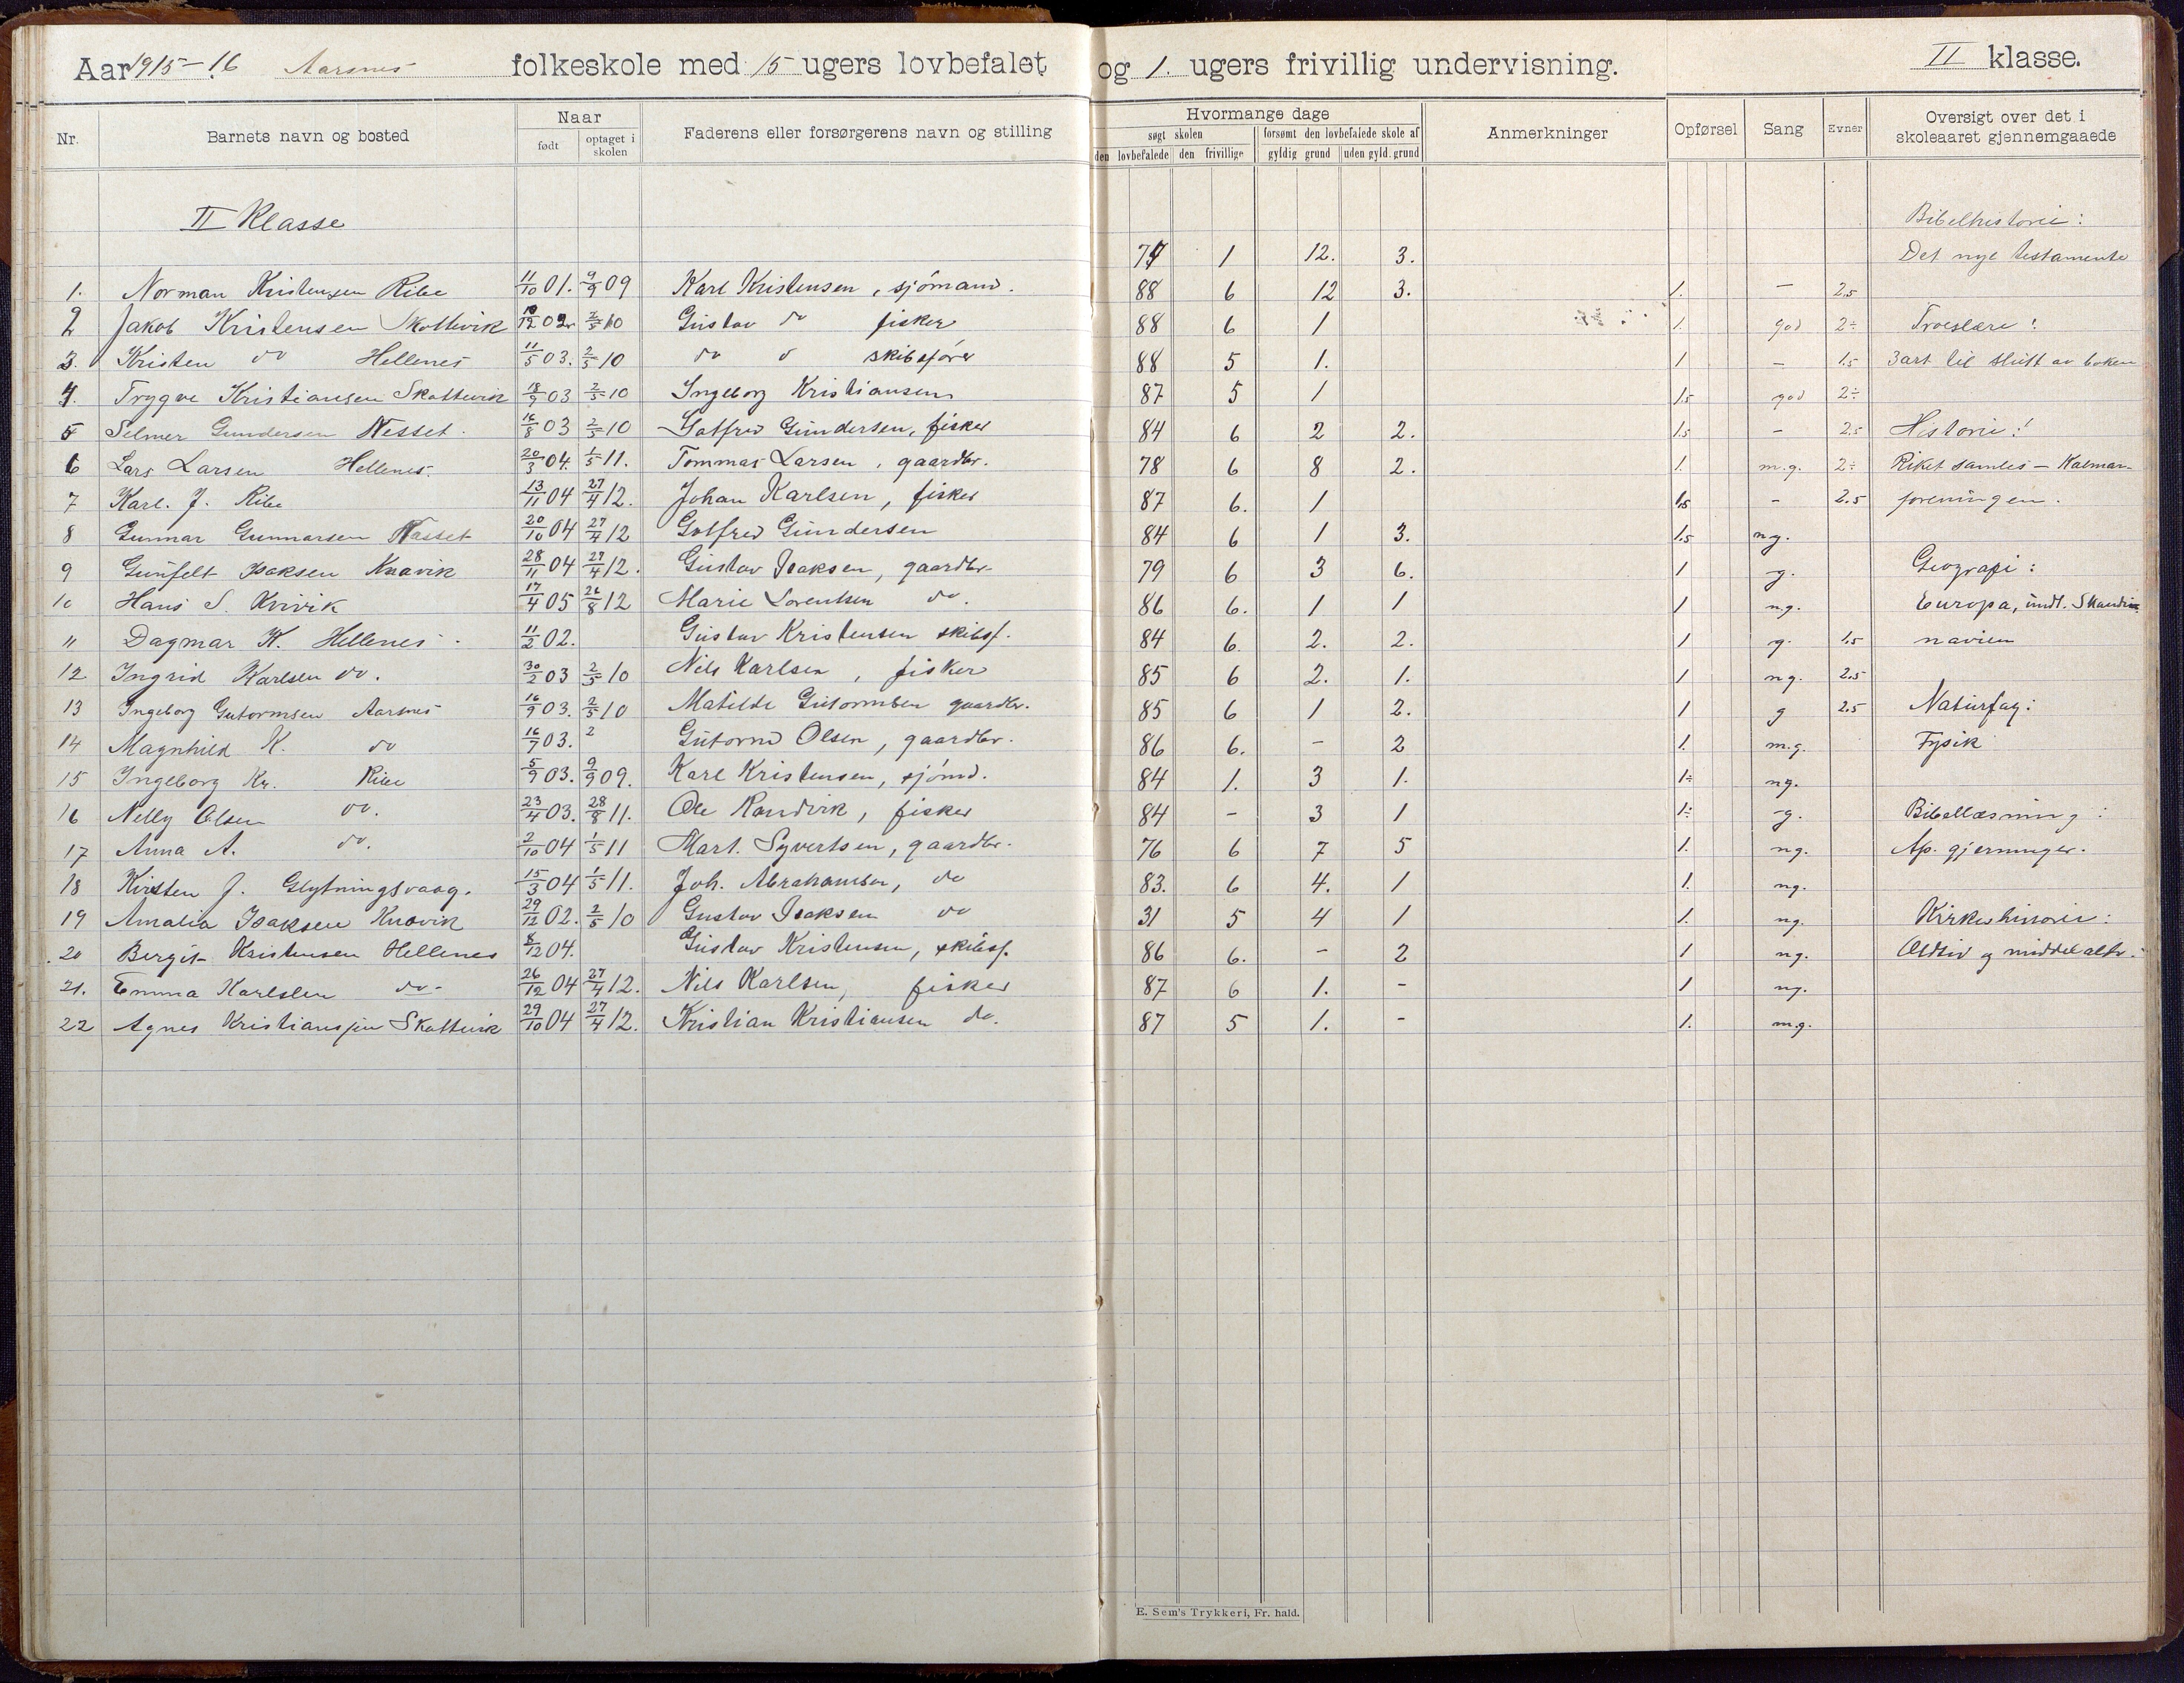 Aar 1915-16 Aarsnes folkeskole med 15 ugers lovbefalet og 1. ugers frivillig undervisning. II klasse.
Nr. Barnets navn og bosted Naar født optaget i skolen Faderens eller forsørgerens navn og stilling Hvormange dage søgt skolen den lovbefalede den frivillige forsømt den lovbefalede skole af gyldig grund uden gyld. grund Anmerkninger Opførsel Sang Evner Oversigt over det i skoleaaret gjennemgaaede
II Klasse Bibelhistorie:
1 12. 3. Det nye testamente
1. Norman Kristensen Ribe 11/10 01. 9/9 09 Karl Kristensen, sjömand. 88 6 12 3. 1. - 2.5
2 Jakob Kristensen Skottevik 02 2/5 10 Gustav do fisker 88 6 1 1. god 2÷ Troeslære:
3. Kristen do Hellenes 11/5 03. 2/5 10 do skibsfører 88 5 1. 1 - 1.5 3 art. til slutt av boken
4. Trygve Kristiansen Skottevik 18/9 03 2/5 10 Ingeborg Kristiansen 87 5 1 1.5 god 2÷
5 Selmer Gundersen Nesset. 16/8 03 2/5 10 Gundersen, fisker 84 6 2 2. 1.5 - 2.5 Historie:
6 Lars Larsen Hellenes. 20/3 04. 1/5 11. Tommas Larsen, gaardbr. 78 6 8 2. 1. m.g. 2÷ Riket samles - Kalmar-
7 Karl. J. Ribe 13/11 04 27/4 12. Johan Karlsen, fisker 87 6. 1 1.5 - 2.5 foreningen.
8 Gunnar Gunnarsen Nasset 20/10 04 27/4 12 Gotfred Gundersen 84 6 1 3. 1.5 ng.
9 Gunfelt Isaksen Knavik 28/11 04 27/4 12. Gustav Isaksen, gaardbr. 79 6 3 6. 1 g. Geografi:
10 Hans S. 17/4 05 26/8 12 Marie Lorentsen do. 86 6. 1 1 1 ng. Europa, undt. Skandi-
11 Dagmar K. Hellenes. 11/2 02. Gustav Kristensen skibsf. 84 6. 2. 2. 1 g. 1.5 navien
12 Ingrid Karlsen do. 30/2 03 2/5 10 Nils Karlsen, fisker 85 6 2. 1. 1 ng. 2.5
13 Ingeborg Gutormsen Aarsnes 16/9 03. 2/5 10 Matilde Gutormsen gaardbr. 85 6 1 2. 1 g 2.5 Naturfag:
14 Magnhild K. do 16/7 03. 2 Gutorm Olsen, gaardbr. 86 6. - 2 1. m.g. Fysik
15 Ingeborg Kr. Ribe 5/9 03. 9/9 09. Karl Kristensen, sjömd. 84 1. 3 1. 1÷ ng.
16 Nelly Olsen do. 23/4 03. 28/8 11. Ole Randvik, fisker 84 - 3 1 1÷ g. Bibellæsning:
17 Anna A. do. 2/10 04 1/5 11 Mart. Syvertsen, gaardbr. 76 6 7 5 1. ng. Ap. gjerninger.
18 Kirsten J. Glytningsvaag. 15/3 04 1/5 11. Joh. Abrahamsen, do 83. 6 4. 1 1. ng.
19 Amalia Isaksen Knavik 29/12 02. 2/5 10 Gustav Isaksen do 31 5 4 1 1. ng. Kirkehistorie:
20 Bergit Kristensen Hellenes 8/12 04. Gustav Kristensen, skibsf. 86 6. - 2 1 ng. Oldtid og middelalder.
21. Emma Karlsen do. 26/12 04 27/4 12. Nils Karlsen, fisker 87 6 1. - 1 ng.
22 Agnes Kristiansen Skottevik 29/10 04 27/4 12. Kristian Kristiansen do. 87 5 1. - 1. m.g.
E. Sem's Trykkeri, Fr. hald.